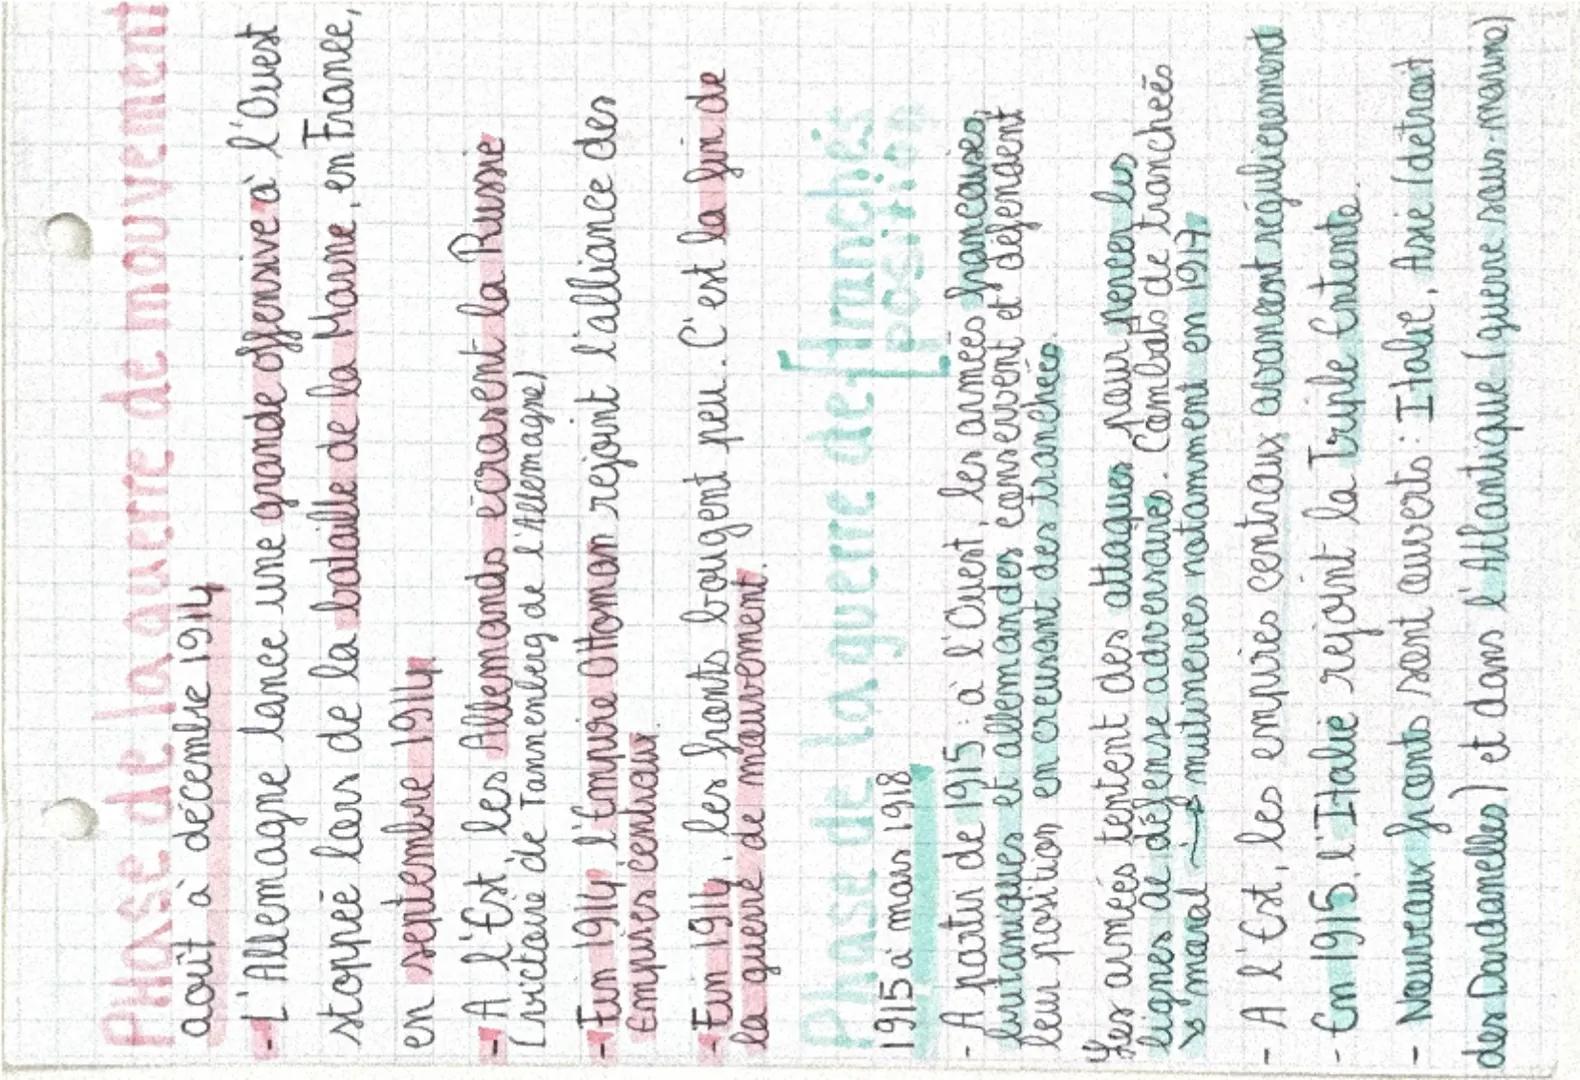 Phase de la guerre de mouvement
août à décembre 1914
- L'Allemagne lance une grande offensive à l'Ouest
stoppeé lors de la bataille de la Marne, en France,
en septembre 1914
- A l'Est, les Allemands écrasent la Russie
(victoire de Tannenberg de l'Allemagne)
- Fin 1914, l'Empire Ottoman rejoint l'alliance des
Empires centraux.
- Fin 1914, les fronts bougent peu. C'est la fin de
la guerre de mouvement.
Phase de la guerre de [tranchés
[position
1915 à mars 1918
- A partir de 1915 : à l'Ouest, les armées françaises,
britanniques et allemandes conservent et défendent
leur position en creusant des tranchées.
Les armées tentent des attaques pour percer les
lignes de défense adversaires. Combats de tranchées
↘ moral → mutineries notamment en 1917
- A l'Est, les empires centraux avancent régulièrement
- En 1915, l'Italie rejoint la Triple Entente.
- Nouveaux fronts sont ouverts : Italie, Asie (détroit
des Dardanelles) et dans l'Atlantique (guerre sous-marine)